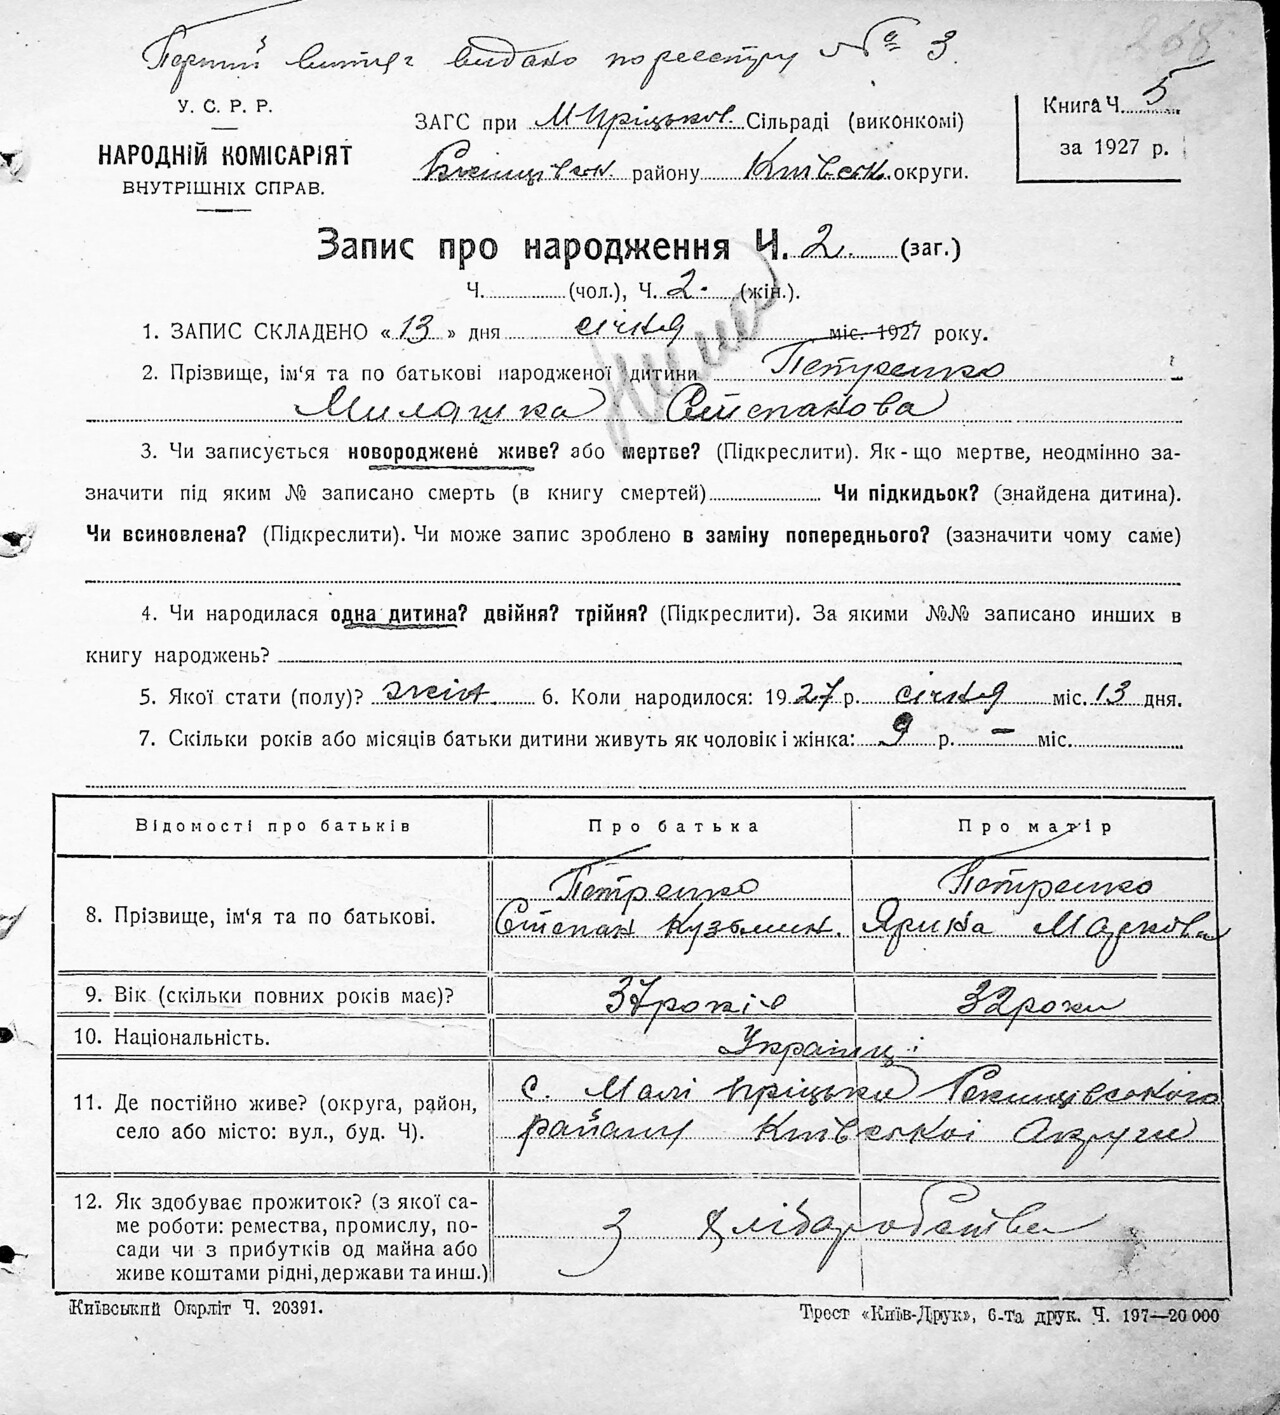 268
Перший витяг видано по реєстру № 3
У. С. Р. Р.
НАРОДНІЙ КОМІСАРІЯТ
ВНУТРІШНІХ СПРАВ.
ЗАГС при М-Пріцьков. Сільраді (виконкомі)
району Київськ. округи.
Книга Ч. 5
за 1927 р.
Запис про народження Ч. 2. (заг.)
Ч. (чол.), Ч. 2. (жін.).
1. ЗАПИС СКЛАДЕНО « 13 » дня січня міс. 1927 року.
2. Прізвище, ім'я та по батькові народженої дитини Петренко
Миляшка Степанова
3. Чи записується новороджене живе? або мертве? (Підкреслити). Як-що мертве, неодмінно за-
значити під яким № записано смерть (в книгу смертей) Чи підкидьок? (знайдена дитина).
Чи всиновлена? (Підкреслити). Чи може запис зроблено в заміну попереднього? (зазначити чому саме)
4. Чи народилася одна дитина? двійня? трійня? (Підкреслити). За якими №№ записано инших в
книгу народжень?
5. Якої стати (полу)? жіт. 6. Коли народилося: 1927 р. січня міс. 13 дня.
7. Скільки років або місяців батьки дитини живуть як чоловік і жінка: 9 р. – міс.
Відомості про батьків Про батька Про матір
8. Прізвище, ім'я та по батькові. Петренко Степан Кузьмин. Петренко Ярина Маркова
9. Вік (скільки повних років має)? 37 років 32 роки
10. Національність. Українці
11. Де постійно живе? (округа, район, с. Малі Пріцьки
село або місто: вул., буд. Ч). району Київської Округи
12. Як здобуває прожиток? (з якої са-
ме роботи: ремества, промислу, по- З хліборобства
сади чи з прибутків од майна або
живе коштами рідні, держави та инш.)
Київський Окрліт Ч. 20391.
Трест «Київ-Друк», 6-та друк. Ч. 197—20 000